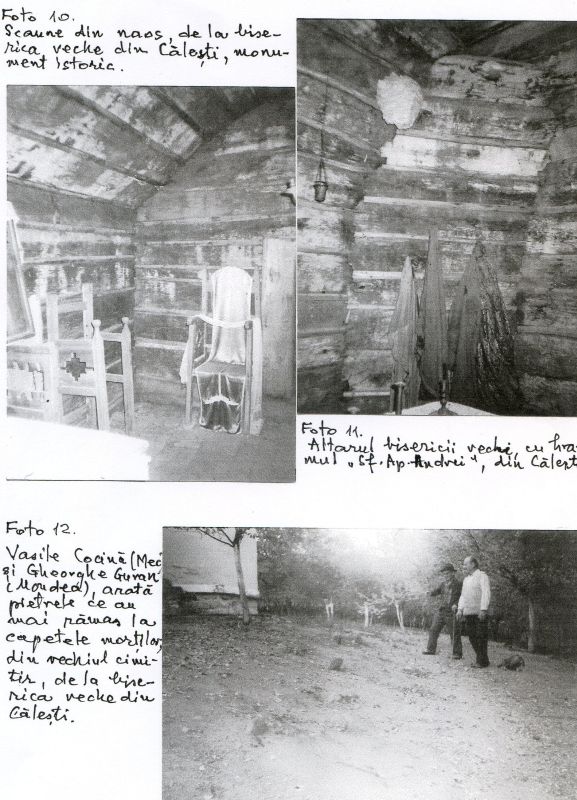 Foto 10.
Scaune din naos, de la bise-
rica veche din Călești, monu-
ment istoric.
Foto 11.
Altarul bisericii vechi, cu hra-
mul „Sf. Ap. Andrei", din Călești
Foto 12.
Vasile Cocină (Meci
și Gheorghe Guran
(Mondea), arată
pietrele ce au
mai rămas la
capetele morților,
din vechiul cimi-
tir, de la bise-
rica veche din
Călești.